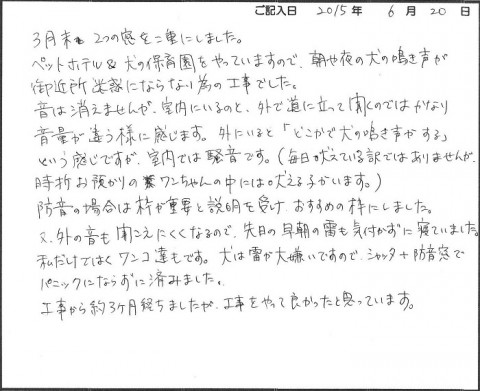 ご記入日 2015年 6月 20日
3月末 2つの窓を二重にしました。
ペットホテル＆犬の保育園をやっていますので、朝や夜の犬の鳴き声が
御近所迷惑にならない為の工事でした。
音は消えませんが、室内にいるのと、外で道に立って聞くのではかなり
音量が違う様に感じます。外にいると「どこかで犬の鳴き声がする」
という感じですが、室内では騒音です。（毎日吠えている訳ではありませんが、
時折お預かりのワンちゃんの中には吠える子がいます。）
防音の場合は枠が重要と説明を受け、おすすめの枠にしました。
又、外の音も聞こえにくくなるので、先日の早朝の雷も気付かずに寝ていました。
私だけではくワンコ達もです。犬は雷が大嫌いですので、シャッター＋防音窓で
パニックにならずに済みました。
工事から約3ヶ月経ちましたが、工事をやって良かったと思っています。